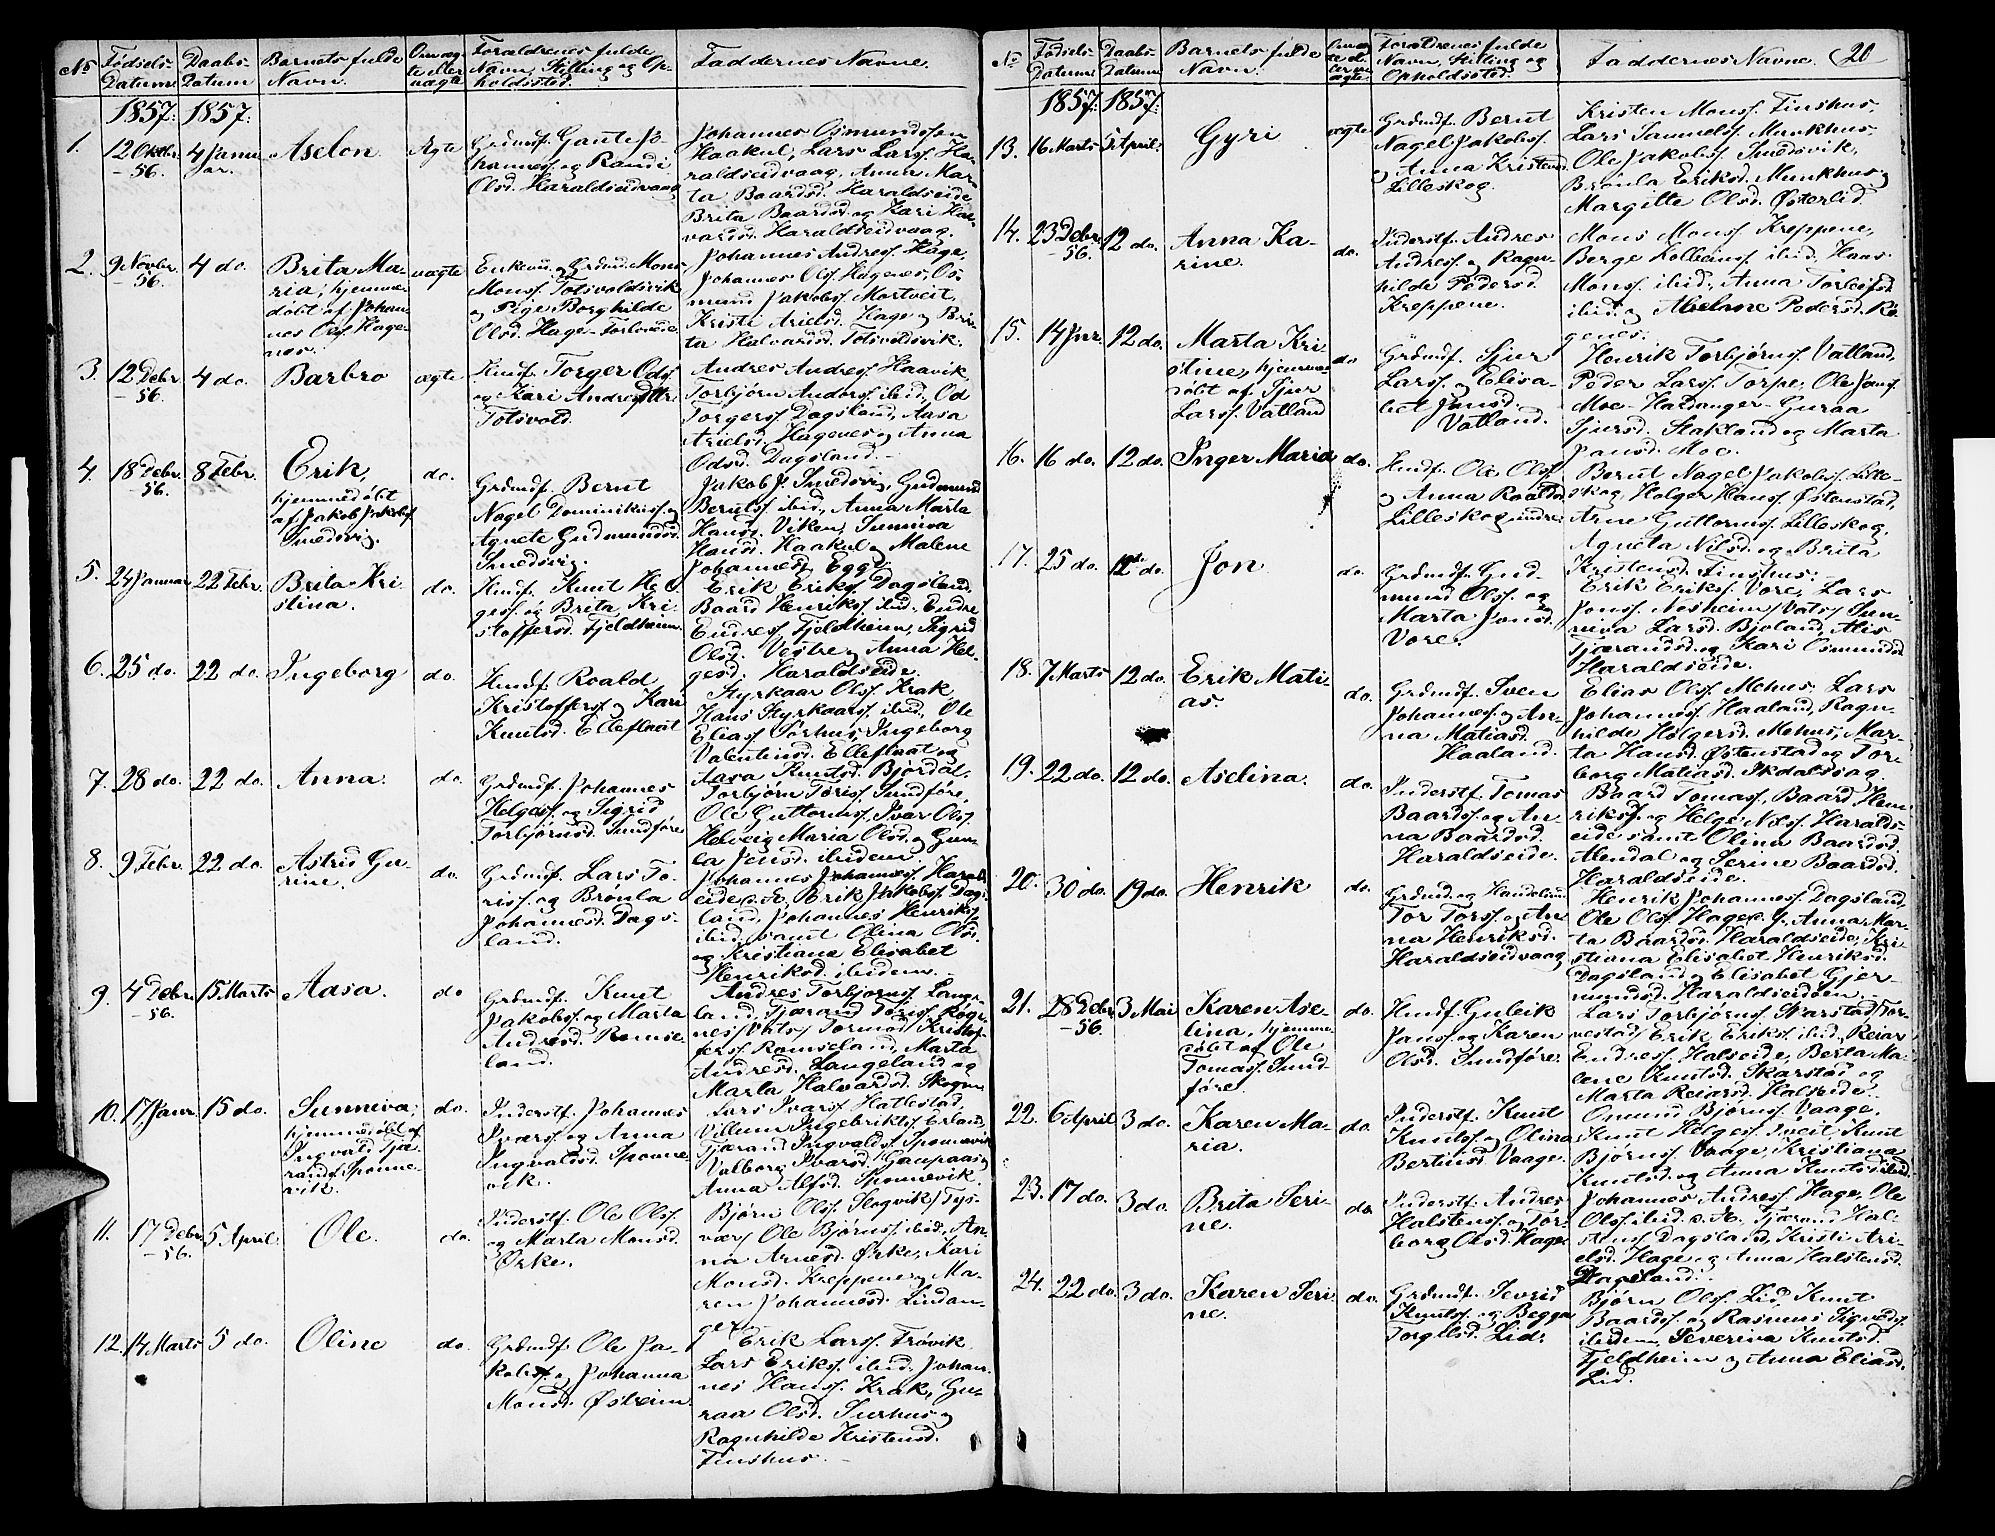 No
Fødsels-
Datum.
Daabs-
Datum
Barnets fulde
Navn.
Om æg-
te eller
uægte
Forældrenes fulde
Navn, Stilling og Op-
holdssted.
Faddernes Navne.
1857: 1857:
1.
12 Oktbr.
-56.
4 Janu-
ar.
Aselon.
Ægte
Grdmdf. Gaute Jo-
hannesf. og Randi
Olsd. Haraldseidvaag
Johannes Osmundssøn
Haakul, Lars Larsf. Ha-
raldseidvaag, Anna Mar-
ta Baardsd. Haraldseide
Brita Baardsd. og Kari Hal-
vardsd. Haraldseidvaag.
2.
9 Novbr.
-56.
4 do.
Brita Ma-
ria, hjemme-
døbt af Johan-
nes Olsf. Hage-
nes.
uægte
Enkem. og Grdmd. Mons
Monsf. Totsvoldsvik
og Pige Borghilde
Olsd. Hage
Johannes Andresf. Hage,
Johannes Olsf. Hagenes, Os-
mund Jakobsf. Mortveit,
Kristi Arielsd. Hage og Bri-
ta Halvardsd. Totsvoldsvik.
3.
12 Debr.
-56.
4 do.
Barbro
ægte
Husmf. Torger Odsf.
og Kari Andresdttr.
Totsvold.
Andres Andresf. Haavik,
Torbjørn Andersf. ibid., Od
Torgersf. Dagsland, Aasa
Arielsd. Hagenes og Anna
Odsd. Dagsland.
4.
18 Debr.
-56.
8 Febr.
Erik,
hjemmedøbt
af Jakob Jakobsf.
Smedsvig.
do.
Grdmdf. Bernt
Nagel Dominikusf. og
Agnete Gudmundsd.
Smedsvig.
Jakob J. Smedsvig, Gudmund
Berntsf. ibid., Anna Marta
Hansd. Viken, Sunniva
Hansd. Haakul og Malene
Johannesd. Egge.
5.
24 Januar
22 Febr.
Brita Kri-
stina.
do.
Husmf. Knut Hel-
gesf. og Brita Kri-
stoffersd. Fjeldheim.
Erik Eriksf. Dagsland,
Baard Henriksf. ibid., Endre
Endresf. Fjeldheim, Sigrid
Olsd. Vestre og Anna Hel-
gesd. Haraldseide.
6.
25 do.
22 do.
Ingeborg
do.
Husmf. Roald
Kristoffersf. og Kari
Knutsd. Elleflaat
Styrkaar Olsf. Krak,
Hans Styrkaarsf. ibid., Ole
Eliasf. Sørhus, Ingeborg
Valentinsd. Elleflaat og
Aasa Knutsd. Bjordal.
7.
28 do.
22 do.
Anna.
do.
Grdmdf. Johannes
Helgesf. og Sigrid
Torbjørnsd. Sundføre
Torbjørn Torisf. Sundføre,
Ole Guttormsf., Ivar Olsf.
Helveig Maria Olsd. og Gun-
la Jensd. ibidem.
8.
9 Febr.
22 do.
Astrid Gu-
rine.
do.
Grdmdf. Lars To-
risf. og Brønla
Johannesd. Dags-
land.
Johannes Johannesf. Harald-
eide, Erik Jakobsf. Dags-
land, Johannes Henriksf.
ibid., samt Olina Olsd.
og Kristiane Elisabet
Henriksd. ibidem.
9.
4 Debr.
-56.
15 Marts
Aasa.
do
Grdmdf. Knut
Jakobsf. og Marta
Andresd. Ramse-
land.
Andres Torbjørnsf. Lange-
land, Tjærand Torisf. Rog-
nes/Vats/ Tormod Kristof-
fersf. Ramseland, Marta
Andresd. Langeland og
Marta Halvardsd. Skogen
10.
17 Janr.
15 do.
Sunneva,
hjemmedøbt af
Ingvald Tjæ-
randsf. Sponne-
vik.
do.
Inderstf. Johannes
Ivarsf. og Anna
Ingvaldsd. Sponne-
vik.
Lars Ivarsf. Hatlestad,
Villum Ingebriktsf. Erland,
Tjærand Ingvaldsf. Sponnevik,
Valborg Ivarsd. Gaupaas og
Anna Alfsd. Sponnevik.
11.
17 Debr.
-56.
5 April.
Ole.
do.
Inderstf. Ole Olsf.
og Marta Monsd.
Ørke.
Bjørn Olsf. Slogvik/Tys-
vær/ Ole Bjørnsf. ibid., An-
na Arnesd. Ørke, Kari
Monsd. Kreppene og Ma-
ren Johannesd. Lindan-
ger.
12.
14 Marts
5 do.
Oline
do.
Grdmdf. Ole Ja-
kobsf. og Johanna
Monsd. Østreim
Erik Larsf. Frøvik,
Lars Eriksf. ibid., Johan-
nes Hansf. Krak, Gu-
raa Olsd. Surhus og
Ragnhilde Kristensd.
Finshus.
No
Fødsels-
Datum
Daabs-
Datum
Barnets fulde
Navn.
Forældrenes fulde
Navn, Stilling og
Opholdssted.
Faddernes Navne.
20
1857: 1857:
13.
16 Marts
5 April.
Gyri
ægte
Grdmdf. Bernt
Nagel Jakobsf.
og Anna Kristensd.
Lilleskog.
Kristen Monsf. Finshus,
Lars Samuelsf. Munkhus,
Ole Jakobsf. Smedsvik,
Brønla Eriksd. Munkhus og
Margitte Olsd. Østerlid.
14.
23 Debr.
-56.
12 do.
Anna Ka-
rine.
do.
Inderstf. Andres
Andresf. og Ragn-
hilde Pedersd.
Kreppene.
Mons Monsf. Kreppene,
Børge Kolbeinsf. ibid., Hans
Monsf. ibid., Anna Torleifsd.
ibid. og Abelone Pedersd. Ra-
genes.
15.
14 Janr.
12 do.
Marta Kri-
stine, hjemme-
døbt af Sjur
Larsf. Vatland
do
Grdmdf. Sjur
Larsf. og Elisa-
bet Jansd.
Vatland.
Henrik Torbjørnsf. Vatland,
Peder Larsf. Torpe, Ole Jansf.
Moe - Hardanger - Guraa
Sjursd. Stakland og Marta
Jansd. Moe.
16.
16 do.
12 do.
Inger Maria
do.
Husmf. Ole Olsf.
og Anna Roaldsd.
Lilleskog indre.
Bernt Nagel Jakobsf. Lille-
skog, Holger Hansf. Østenstad,
Arne Guttormsf. Lilleskog,
Agneta Nilsd. og Brita
Kristensd. Finshus.
17.
25 do.
12 do.
Jon
do.
Grdmdf. Gud-
mund Olsf. og
Marta Jonsd.
Vore.
Erik Eriksf. Vore, Lars
Jonsf. Nesheim/Vats/ Sun-
niva Larsd. Bjoland, Alis
Tjærandsd. og Kari Osmundsd.
Haraldseide.
18.
7 Marts
12 do.
Erik Mati-
as.
do.
Grdmdf. Sven
Johannesf. og An-
na Matiasd.
Haaland.
Elias Olsf. Mehus, Lars
Johannesf. Haaland, Ragn-
hilde Holgersd. Mehus, Mar-
ta Hansd. Østenstad og Tor-
borg Matiasd. Skdalsvag.
19.
22 do.
12 do.
Aselina.
do.
Inderstf. Tomas
Baardsf. og An-
na Baardsd.
Haraldseide.
Baard Tomasf., Baard Hen-
riksf. og Helge Nilsf. Haralds-
eide samt Olina Baardsd.
Alendal og Serine Baardsd.
Haraldseide.
20.
30 do.
19 do.
Henrik
do.
Grdmd. og Handelsmd.
Tor Torsf. og An-
na Henriksd.
Haraldseidvaag
Henrik Johannesf. Dagsland,
Ole Olsf. Hage, Anna Mar-
ta Baardsd. Haraldseide, Kri-
stiana Elisabet Henriksd.
Dagsland og Elisabet Gjer-
mundsd. Haraldseidøen.
21.
28 Debr.
-56.
3 Mai
Karen Ase-
lina, hjemme-
døbt af Ole
Tomasf. Sund-
føre.
do.
Husmf. Guleik
Jansf. og Karen
Olsd. Sundføre.
Lars Torbjørnsf. Skarstad/Tor-
vestad/ Erik Eriksf. ibid., Reiar
Endresf. Halseide, Berta Ma-
lene Knutsd. Skarstad og
Marta Reiarsd. Halseide.
22.
6 April
3 do.
Karen Ma-
ria.
do.
Inderstf. Knut
Knutsf. og Olina
Bertinsd. Vaage.
Omund Bjørnsf. Vaage,
Knut Helgesf. Sveit, Knut
Bjørnsf. Vaage, Kristiana
Knutsd. og Anna Knutsd. ibid.
23.
17 do.
3 do.
Brita Seri-
ne.
do.
Inderstf. Andres
Halstensf. og Tor-
borg Olsd. Hage.
Johannes Andresf. Hage, Ole
Olsf. ibid., Tjærand Hal-
stensf. Dagsland, Kristi Ari-
elsd. Hage og Anna Halstensd.
Dagsland.
24.
22 do.
3 do.
Karen Seri-
ne.
do.
Grdmdf. Sevrid
Knutsf. og Begga
Torgilsd. Lid.
Bjørn Olsf. Lid, Knut
Baardsf. og Rasmus Sigvedsf.
ibidem, Severina Knutsd.
Fjeldheim og Anna Eliasd.
Lid.